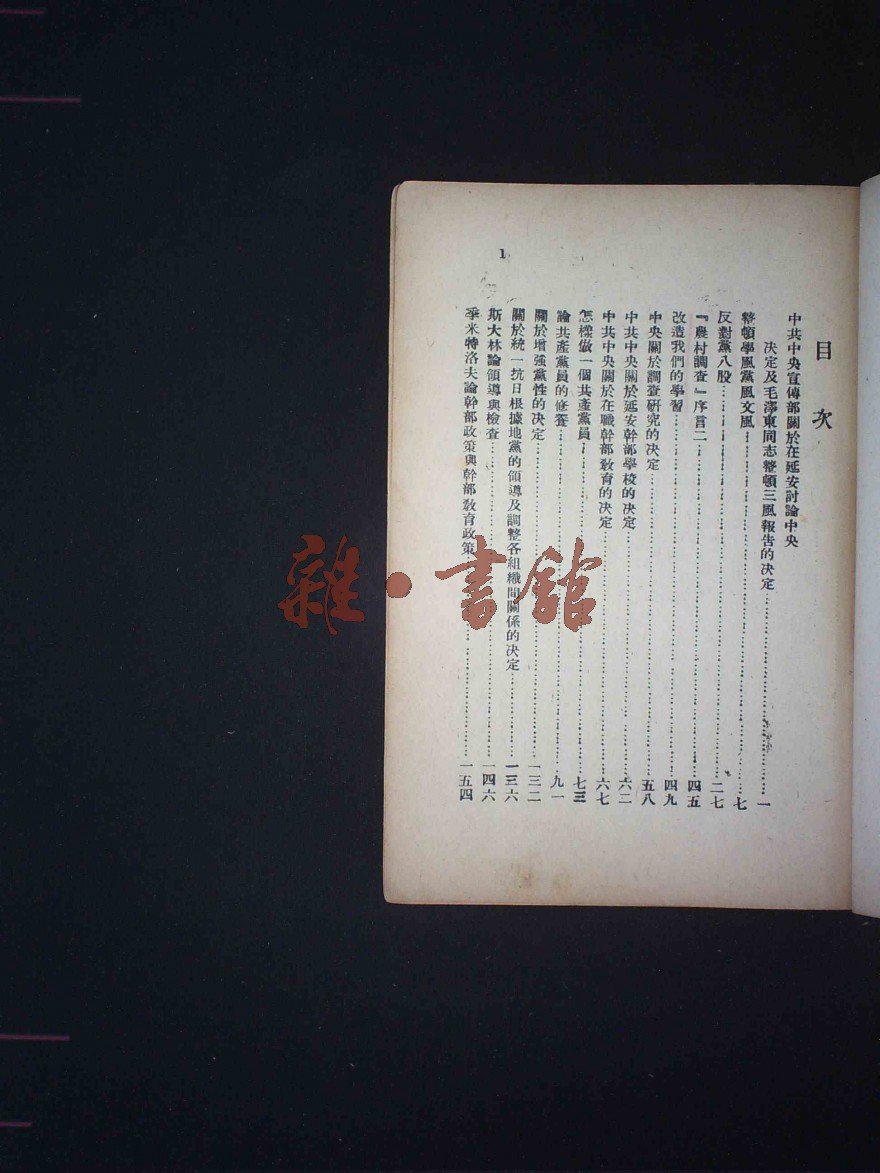 目次
中共中央宣傳部關於在延安討論中央
決定及毛澤東同志整頓三風報告的決定……一
整頓學風黨風文風……七
反對黨八股……二七
『農村調查』序言二……四五
改造我們的學習……四九
中央關於調查研究的決定……五八
中共中央關於延安幹部學校的決定……六二
中共中央關於在職幹部教育的決定……六七
怎樣做一個共產黨員……七三
論共產黨員的修養……九一
關於增強黨性的決定……一三二
關於統一抗日根據地黨的領導及調整各組織間關係的決定……一三六
斯大林論領導與檢查……一四六
季米特洛夫論幹部政策與幹部教育政策……一五四
1
雜·書館